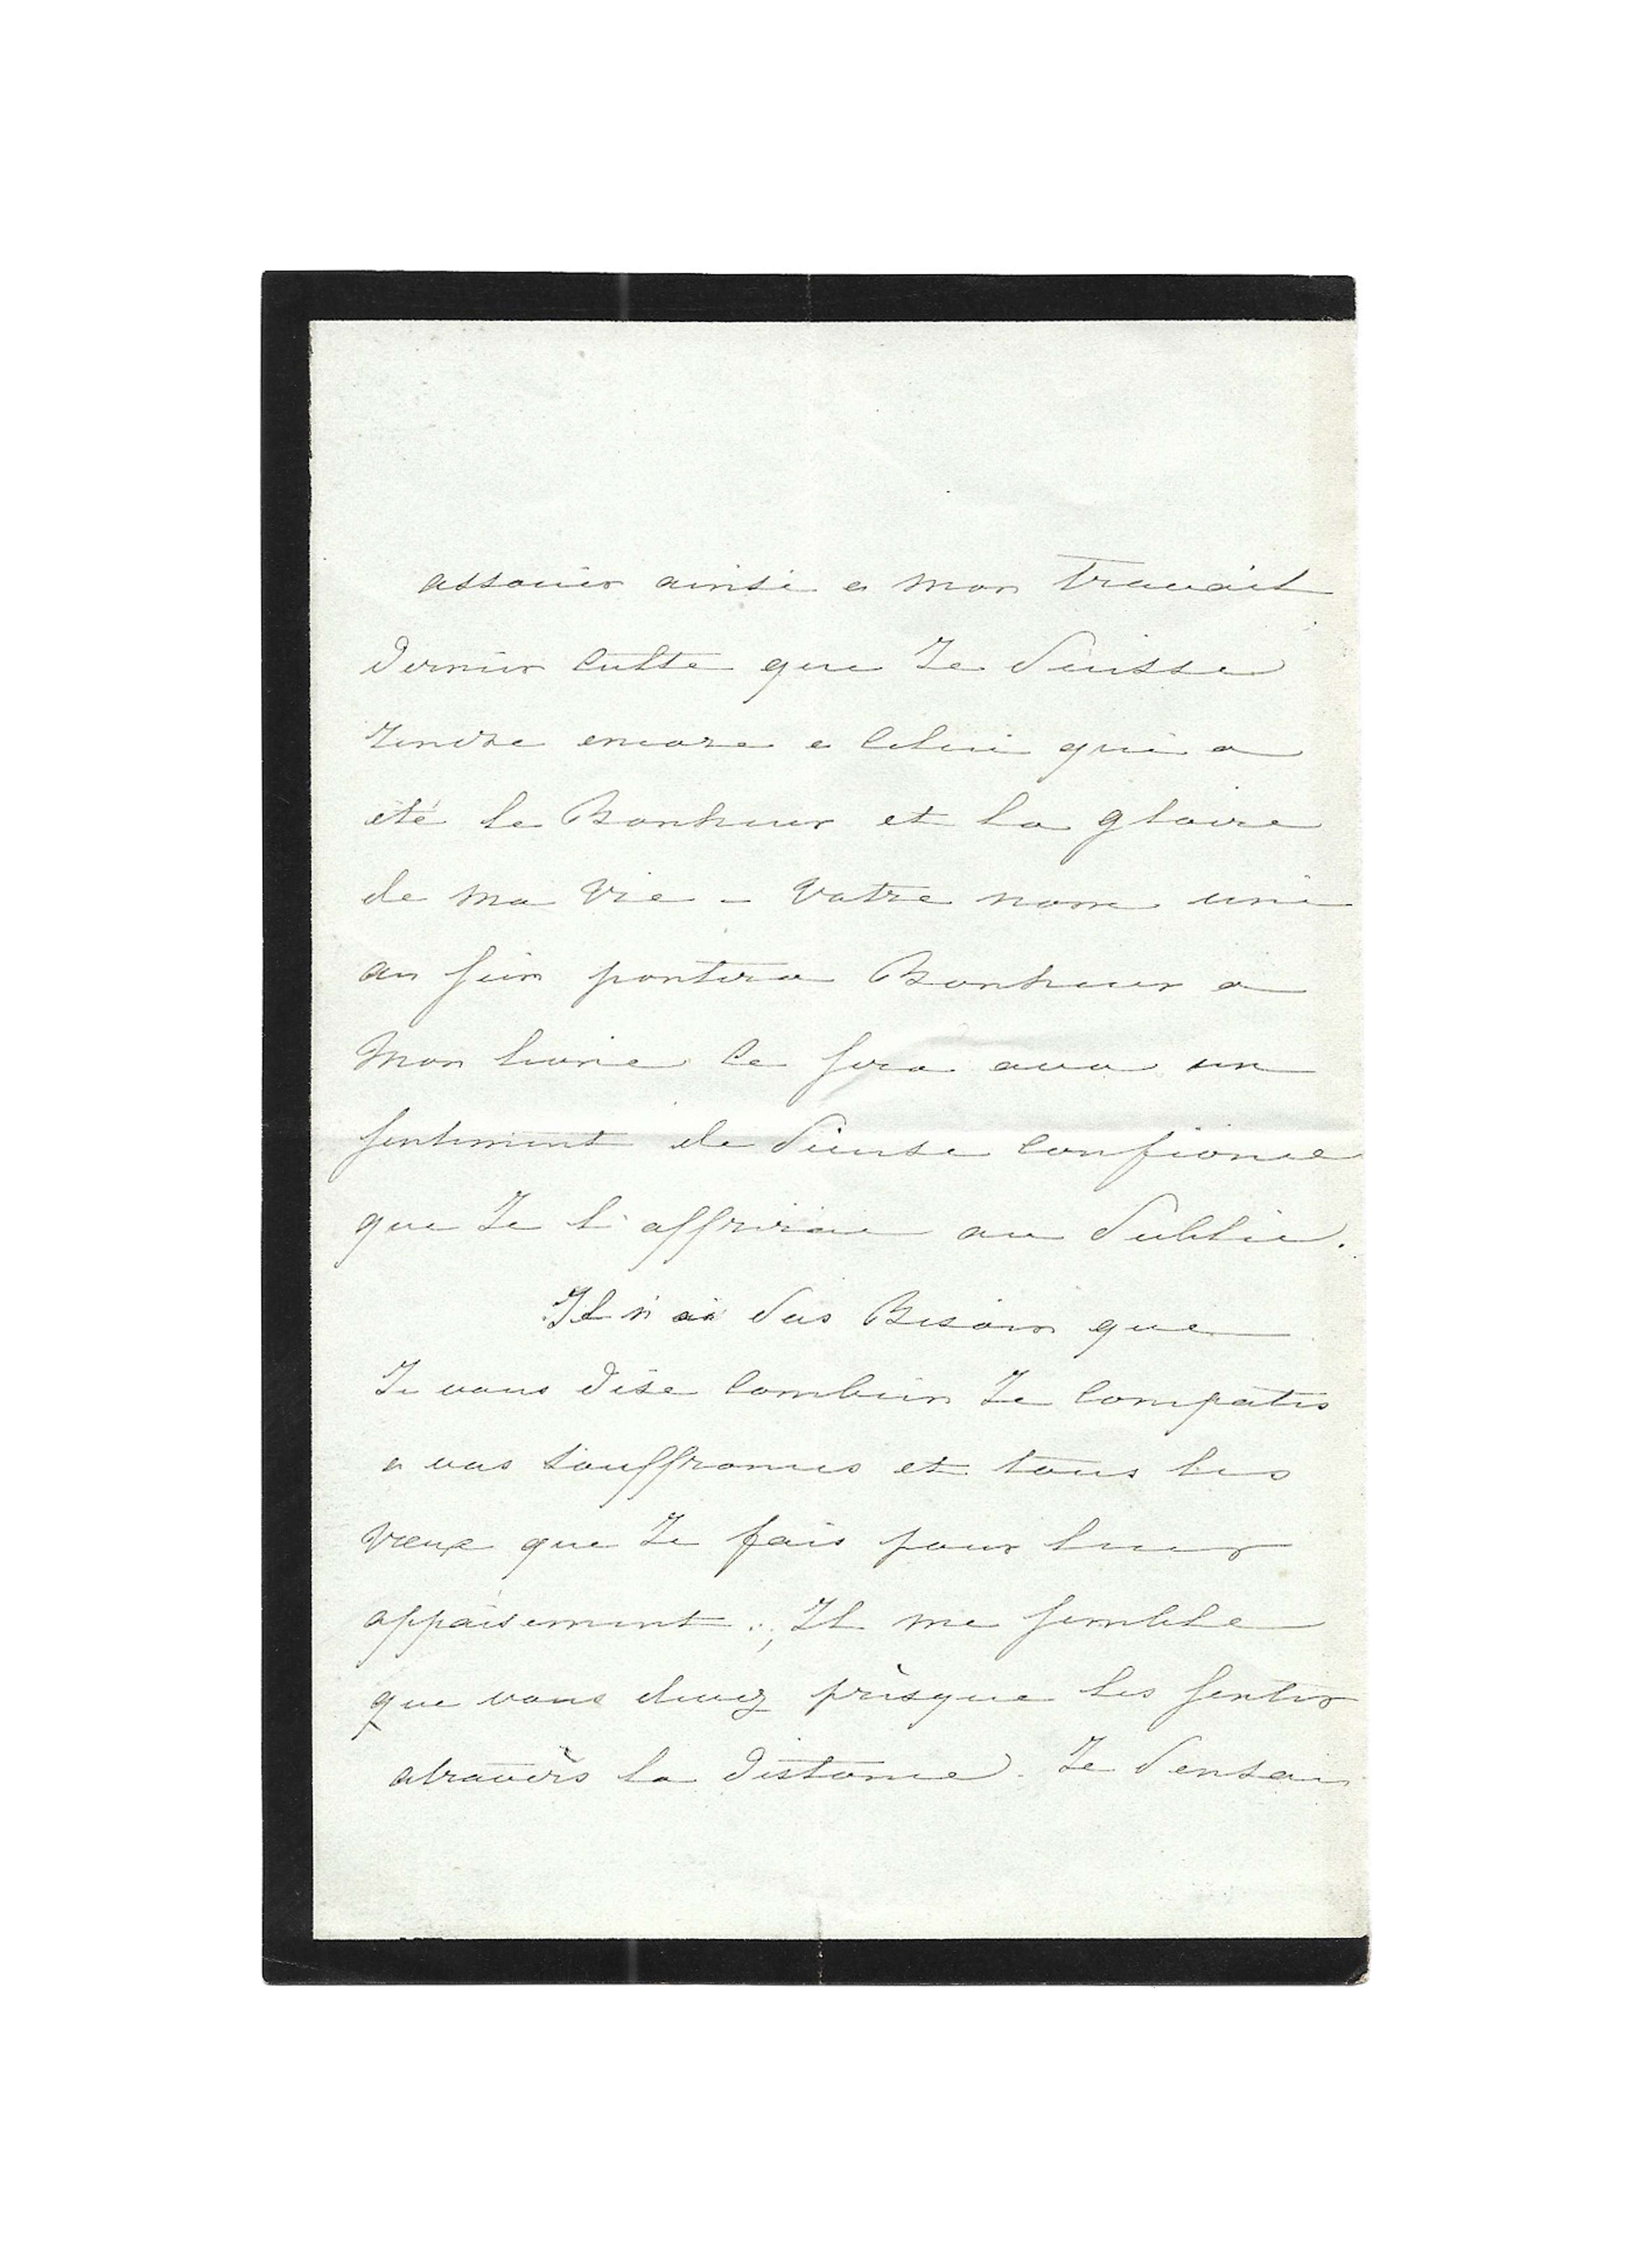 associer ainsi a mon travail
dernier culte que Je Puisse
rendre encore a Celui qui a
été le Bonheur et la gloire
de ma Vie – Votre nom uni
au sien portera Bonheur a
Mon livre Ce sera avec un
sentiment de Pieuse Confiance
que Je l'offrirai au Public.
Il n'ai Pas Besoin que
Je vous dise Combien Je Compatis
a vos souffrances et tous les
Vœux que Je fais pour leur
appaisement. Il me semble
que vous devez prèsque les sentir
atravèrs la distance. Je Pensai